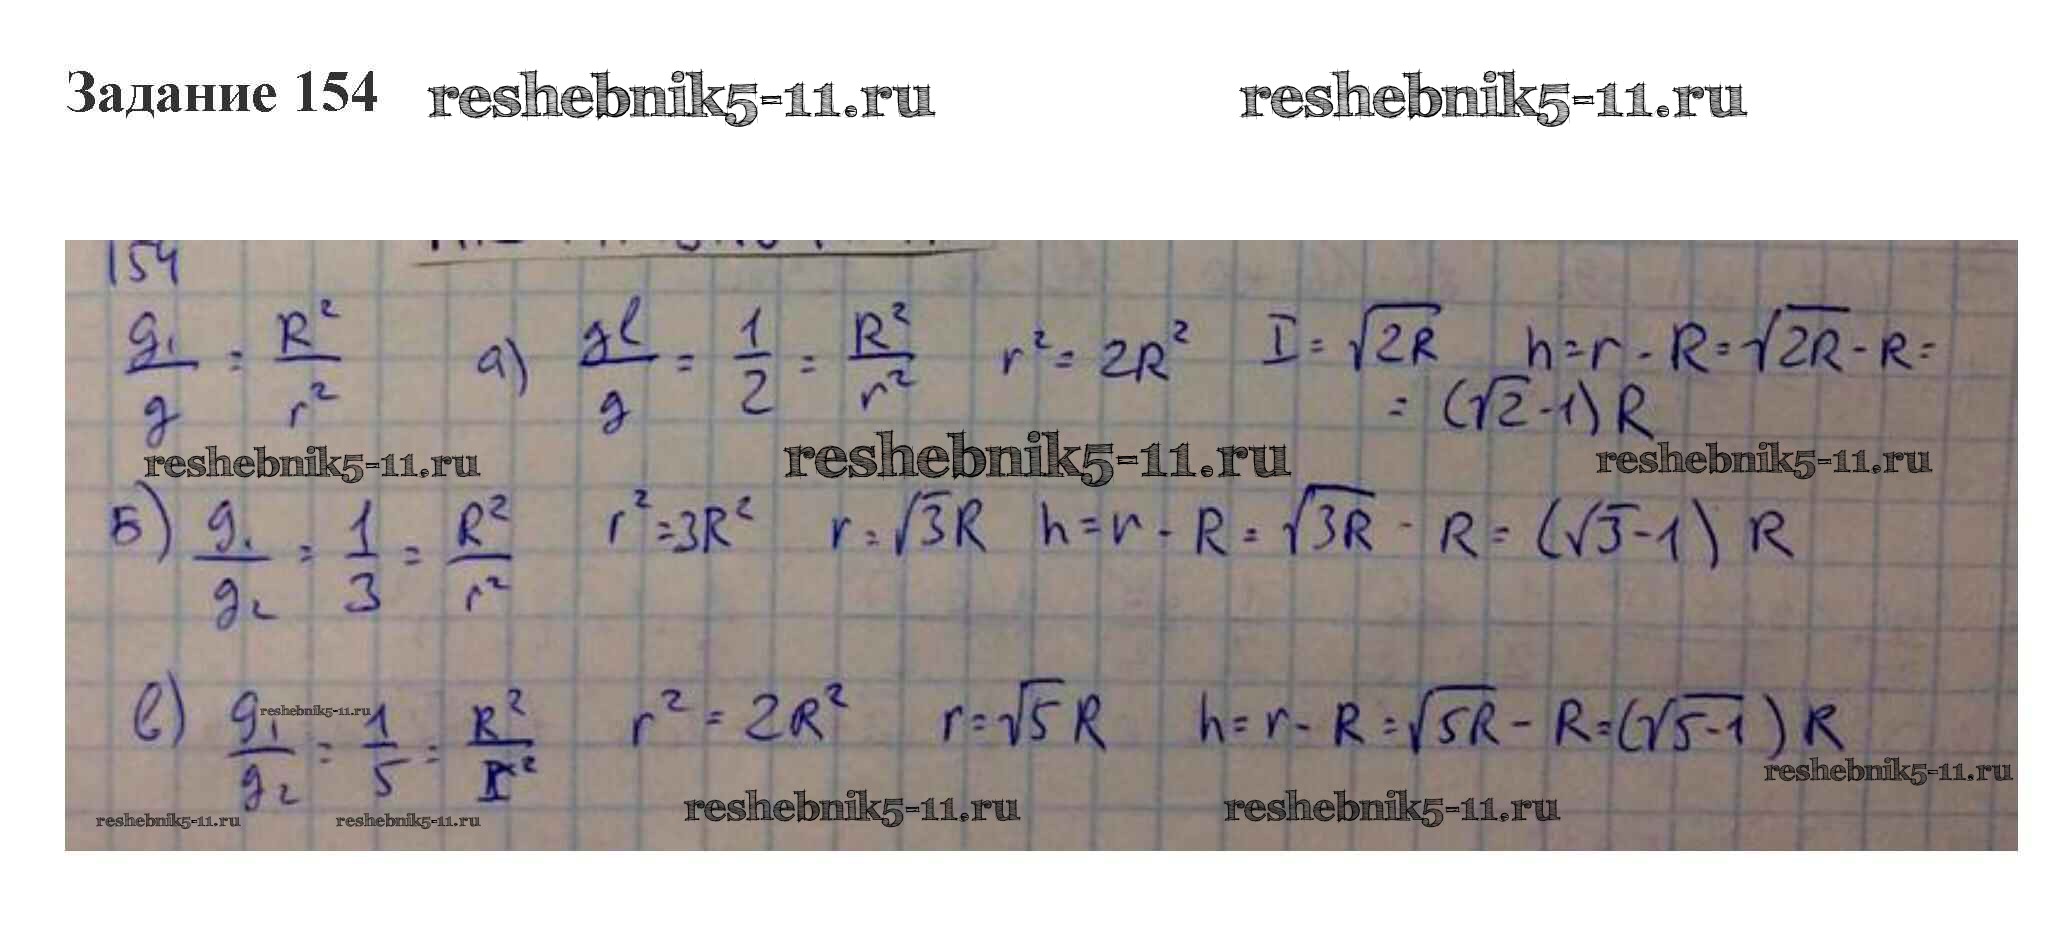 Задание 154 reshebnik5-11.ru reshebnik5-11.ru
154
g₁/g = R²/r² а) gl/g = 1/2 = R²/r² r² = 2R² I = √2R h = r - R = √2R - R =
= (√2 - 1) R
reshebnik5-11.ru reshebnik5-11.ru reshebnik5-11.ru
Б) g₁/g₂ = 1/3 = R²/r² r² = 3R² r = √3R h = r - R = √3R - R = (√3 - 1) R
в) g₁/g₂ = 1/5 = R²/r² r² = 2R² r = √5 R h = r - R = √5R - R = (√5-1) R
reshebnik5-11.ru reshebnik5-11.ru
reshebnik5-11.ru reshebnik5-11.ru reshebnik5-11.ru reshebnik5-11.ru